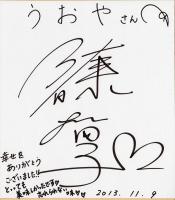 うおやさん
幸せを
ありがとう
ございました!!
とっても
美味しかったです♡
忘れられない味♡♡
2013.11.9